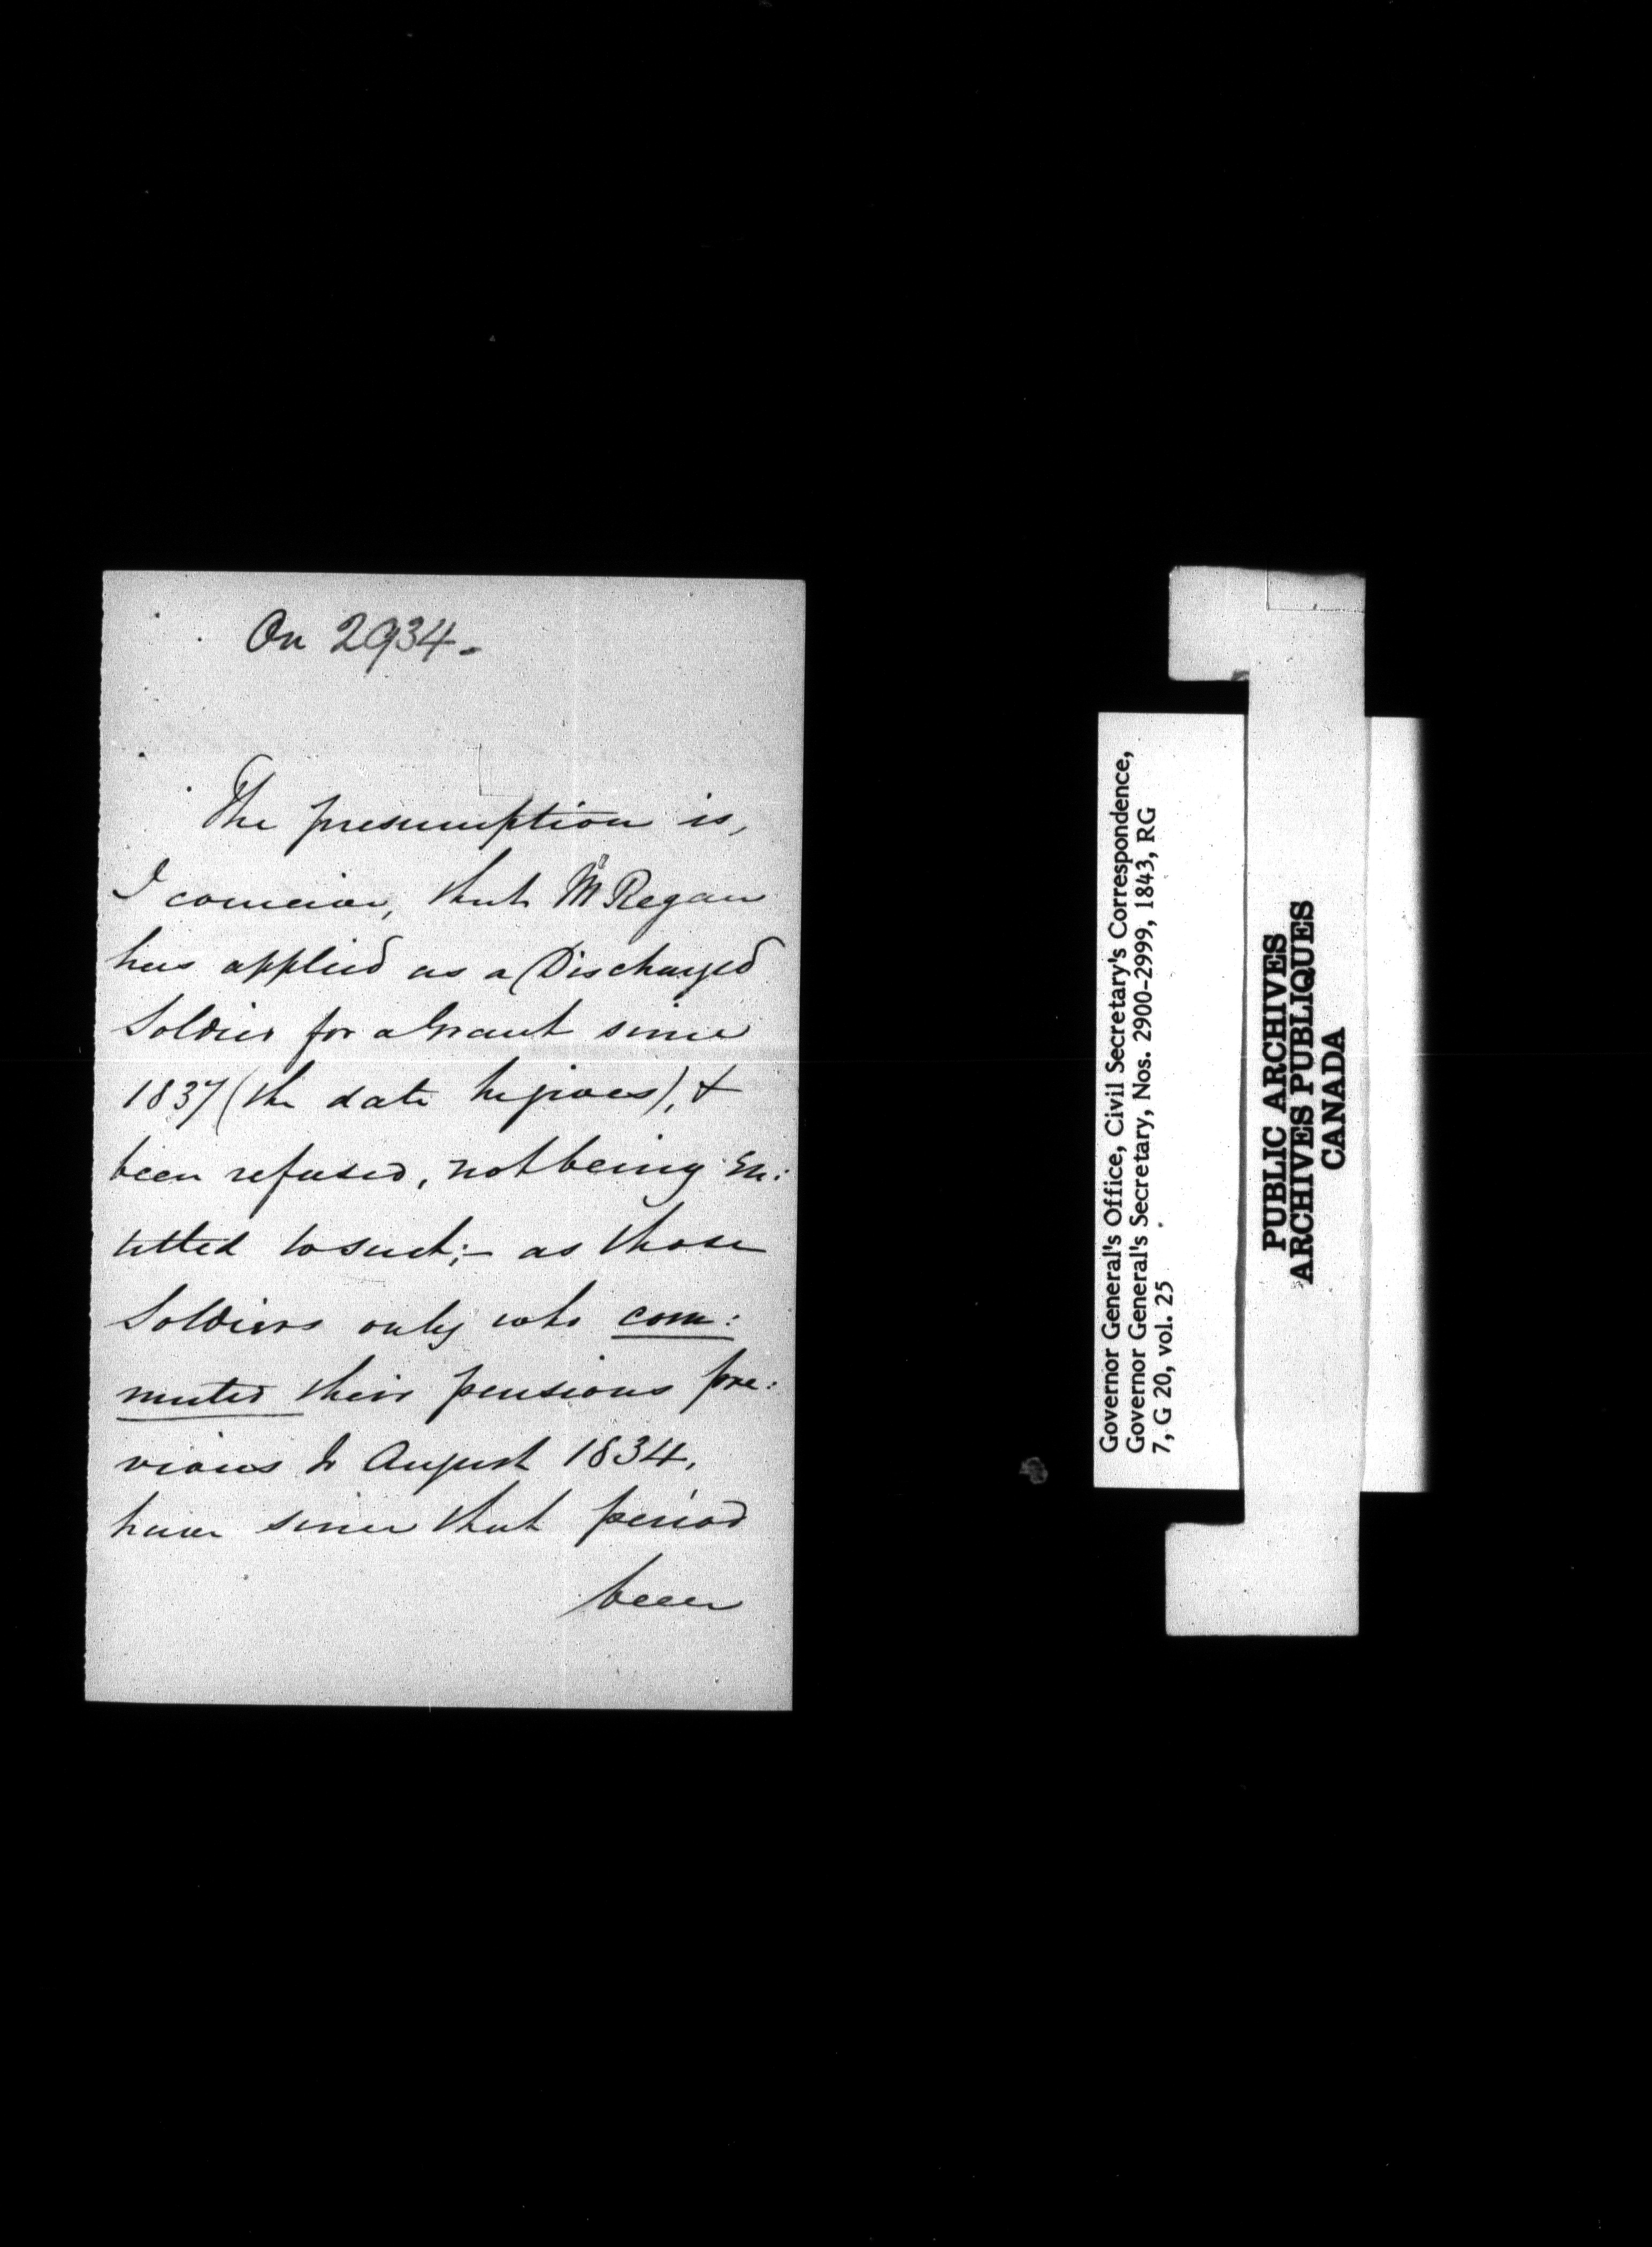 On 2934.
The presumption is,
I conceive, that Mr Regan
has applied as a Discharged
Soldier for a Grant since
1837 (the date he gives), &
been refused, not being en:
titled to such;- as those
Soldiers only who com:
muted their pensions pre:
vious to August 1834,
have since that period
been
Governor General's Office, Civil Secretary's Correspondence,
Governor General's Secretary, Nos. 2900-2999, 1843, RG
7, G 20, vol. 25
PUBLIC ARCHIVES
ARCHIVES PUBLIQUES
CANADA